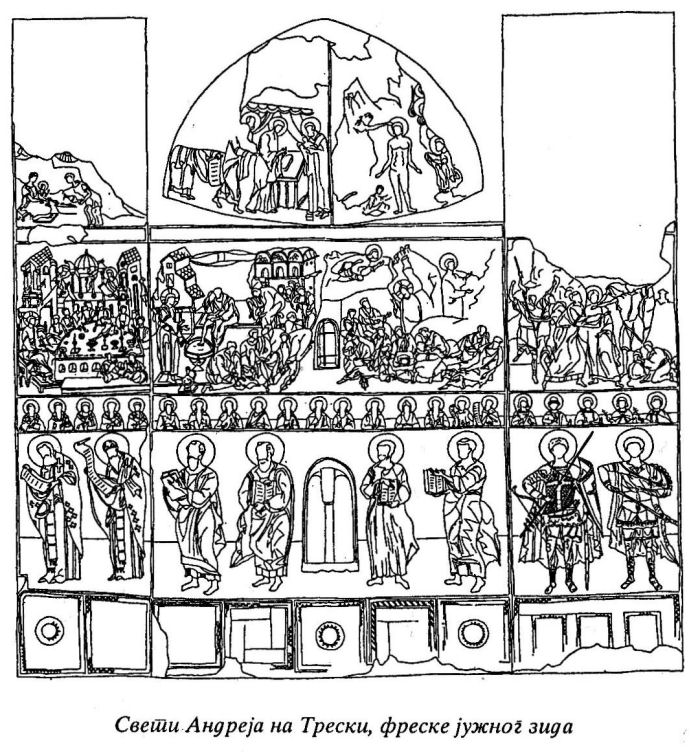 Свети Андреја на Трески, фреске јужног зида